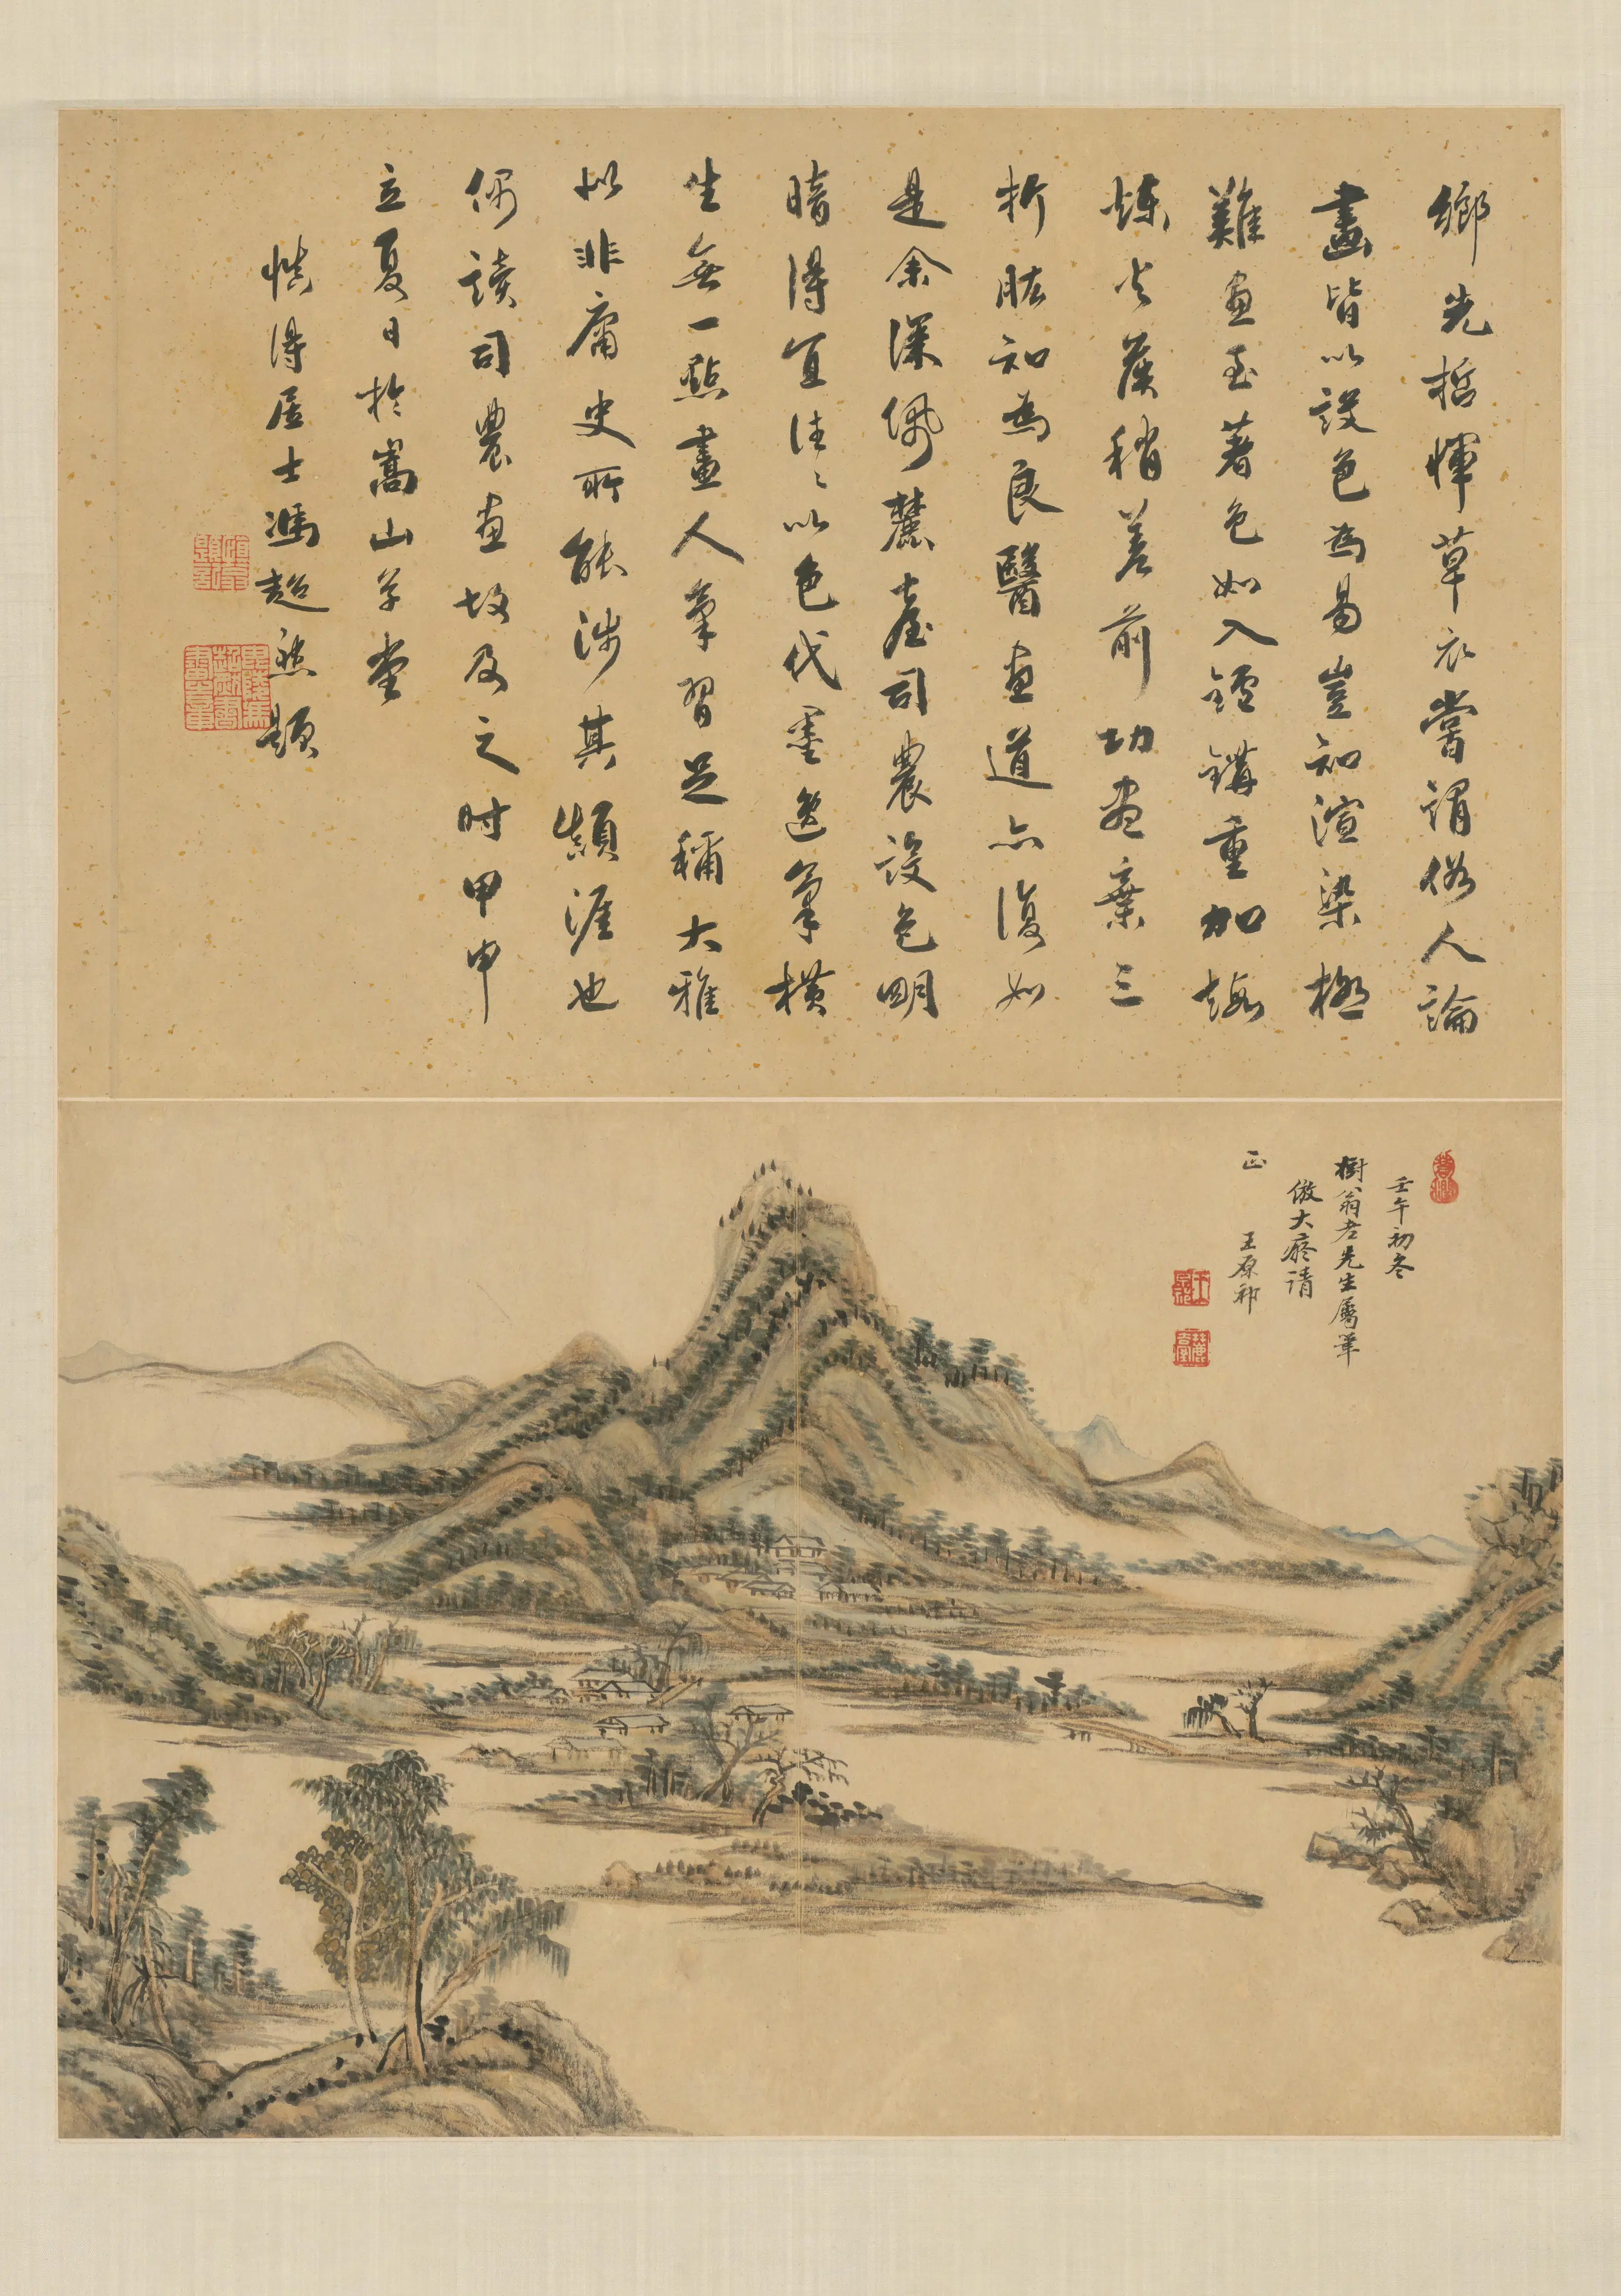 鄉先哲惲草衣嘗謂俗人論
畫皆以設色為易豈知渲染極
難畫至著色如入鑪鞲重加煅
煉火候稍差前功盡棄三
折肱知為良醫畫道亦復如
是余深佩麓臺司農設色明
暗得宜往往以色代墨逸筆橫
生無一點畫人筆習足稱大雅
似非庸史所能涉其顛涯也
偶讀司農畫故及之时甲申
立夏日於嵩山草堂
慎得居士馮超然題
壬午初冬
樹翁老先生屬筆
倣大癡請
正 王原祁